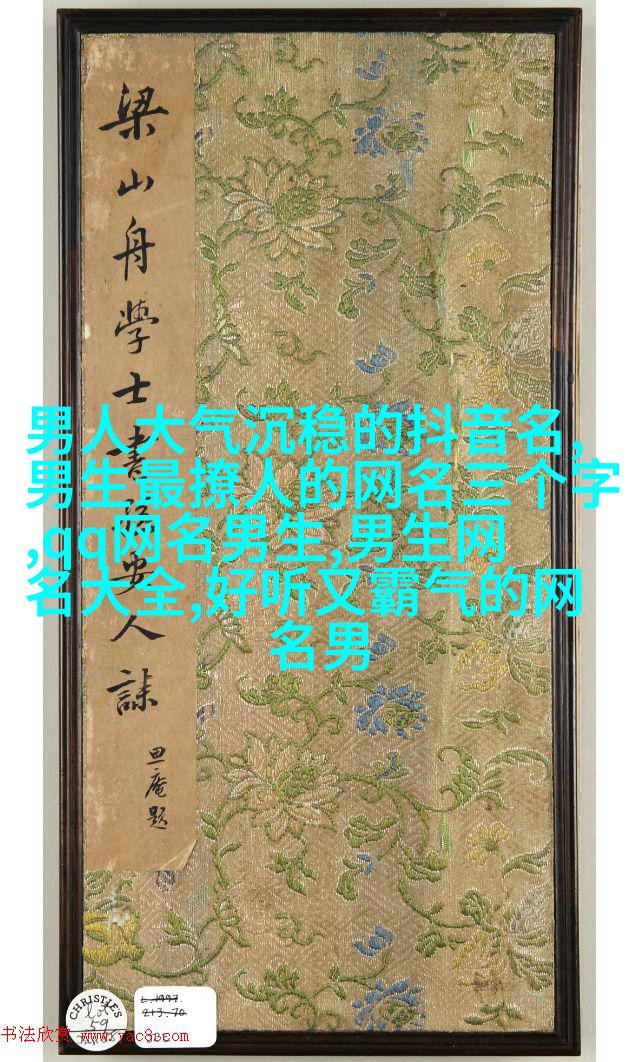 梁山舟學士書安人誄
庵題
男人大气沉稳的抖音名,
男生最撩人的网名三个字
,qq网名男生,男生网
名大全,好听又霸气的网
名男
CHRISTIE'S
lot
59
L.1997.
213.70
书法欣赏 www.yac8.com